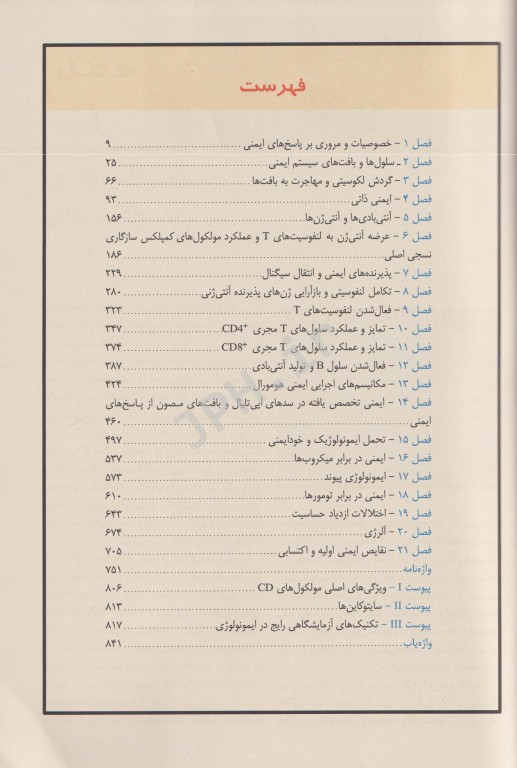 فهرست
فصل ۱ – خصوصیات و مروری بر پاسخ‌های ایمنی ۹
فصل ۲ ـ سلول‌ها و بافت‌های سیستم ایمنی ۲۵
فصل ۳ – گردش لکوسیتی و مهاجرت به بافت‌ها ۶۶
فصل ۴ – ایمنی ذاتی ۹۳
فصل ۵ – آنتی‌بادی‌ها و آنتی‌ژن‌ها ۱۵۶
فصل ۶ – عرضه آنتی‌ژن به لنفوسیت‌های T و عملکرد مولکول‌های کمپلکس سازگاری
نسجی اصلی ۱۸۶
فصل ۷ – پذیرنده‌های ایمنی و انتقال سیگنال ۲۲۹
فصل ۸ – تکامل لنفوسیتی و بازآرایی ژن‌های پذیرنده آنتی‌ژنی ۲۸۰
فصل ۹ – فعال‌شدن لنفوسیت‌های T ۳۲۳
فصل ۱۰ – تمایز و عملکرد سلول‌های T مجری CD4⁺ ۳۴۷
فصل ۱۱ – تمایز و عملکرد سلول‌های T مجری CD8⁺ ۳۷۴
فصل ۱۲ – فعال‌شدن سلول B و تولید آنتی‌بادی ۳۸۷
فصل ۱۳ – مکانیسم‌های اجرایی ایمنی هومورال ۴۲۴
فصل ۱۴ – ایمنی تخصص یافته در سدهای اپی‌تلیال و بافت‌های مصون از پاسخ‌های
ایمنی ۴۶۰
فصل ۱۵ – تحمل ایمونولوژیک و خودایمنی ۴۹۷
فصل ۱۶ – ایمنی در برابر میکروب‌ها ۵۳۷
فصل ۱۷ – ایمونولوژی پیوند ۵۷۳
فصل ۱۸ – ایمنی در برابر تومورها ۶۱۰
فصل ۱۹ – اختلالات ازدیاد حساسیت ۶۴۳
فصل ۲۰ – آلرژی ۶۷۴
فصل ۲۱ – نقایص ایمنی اولیه و اکتسابی ۷۰۵
واژه‌نامه ۷۵۱
پیوست I – ویژگی‌های اصلی مولکول‌های CD ۸۰۶
پیوست II – سایتوکاین‌ها ۸۱۳
پیوست III – تکنیک‌های آزمایشگاهی رایج در ایمونولوژی ۸۱۷
واژه‌یاب ۸۴۱